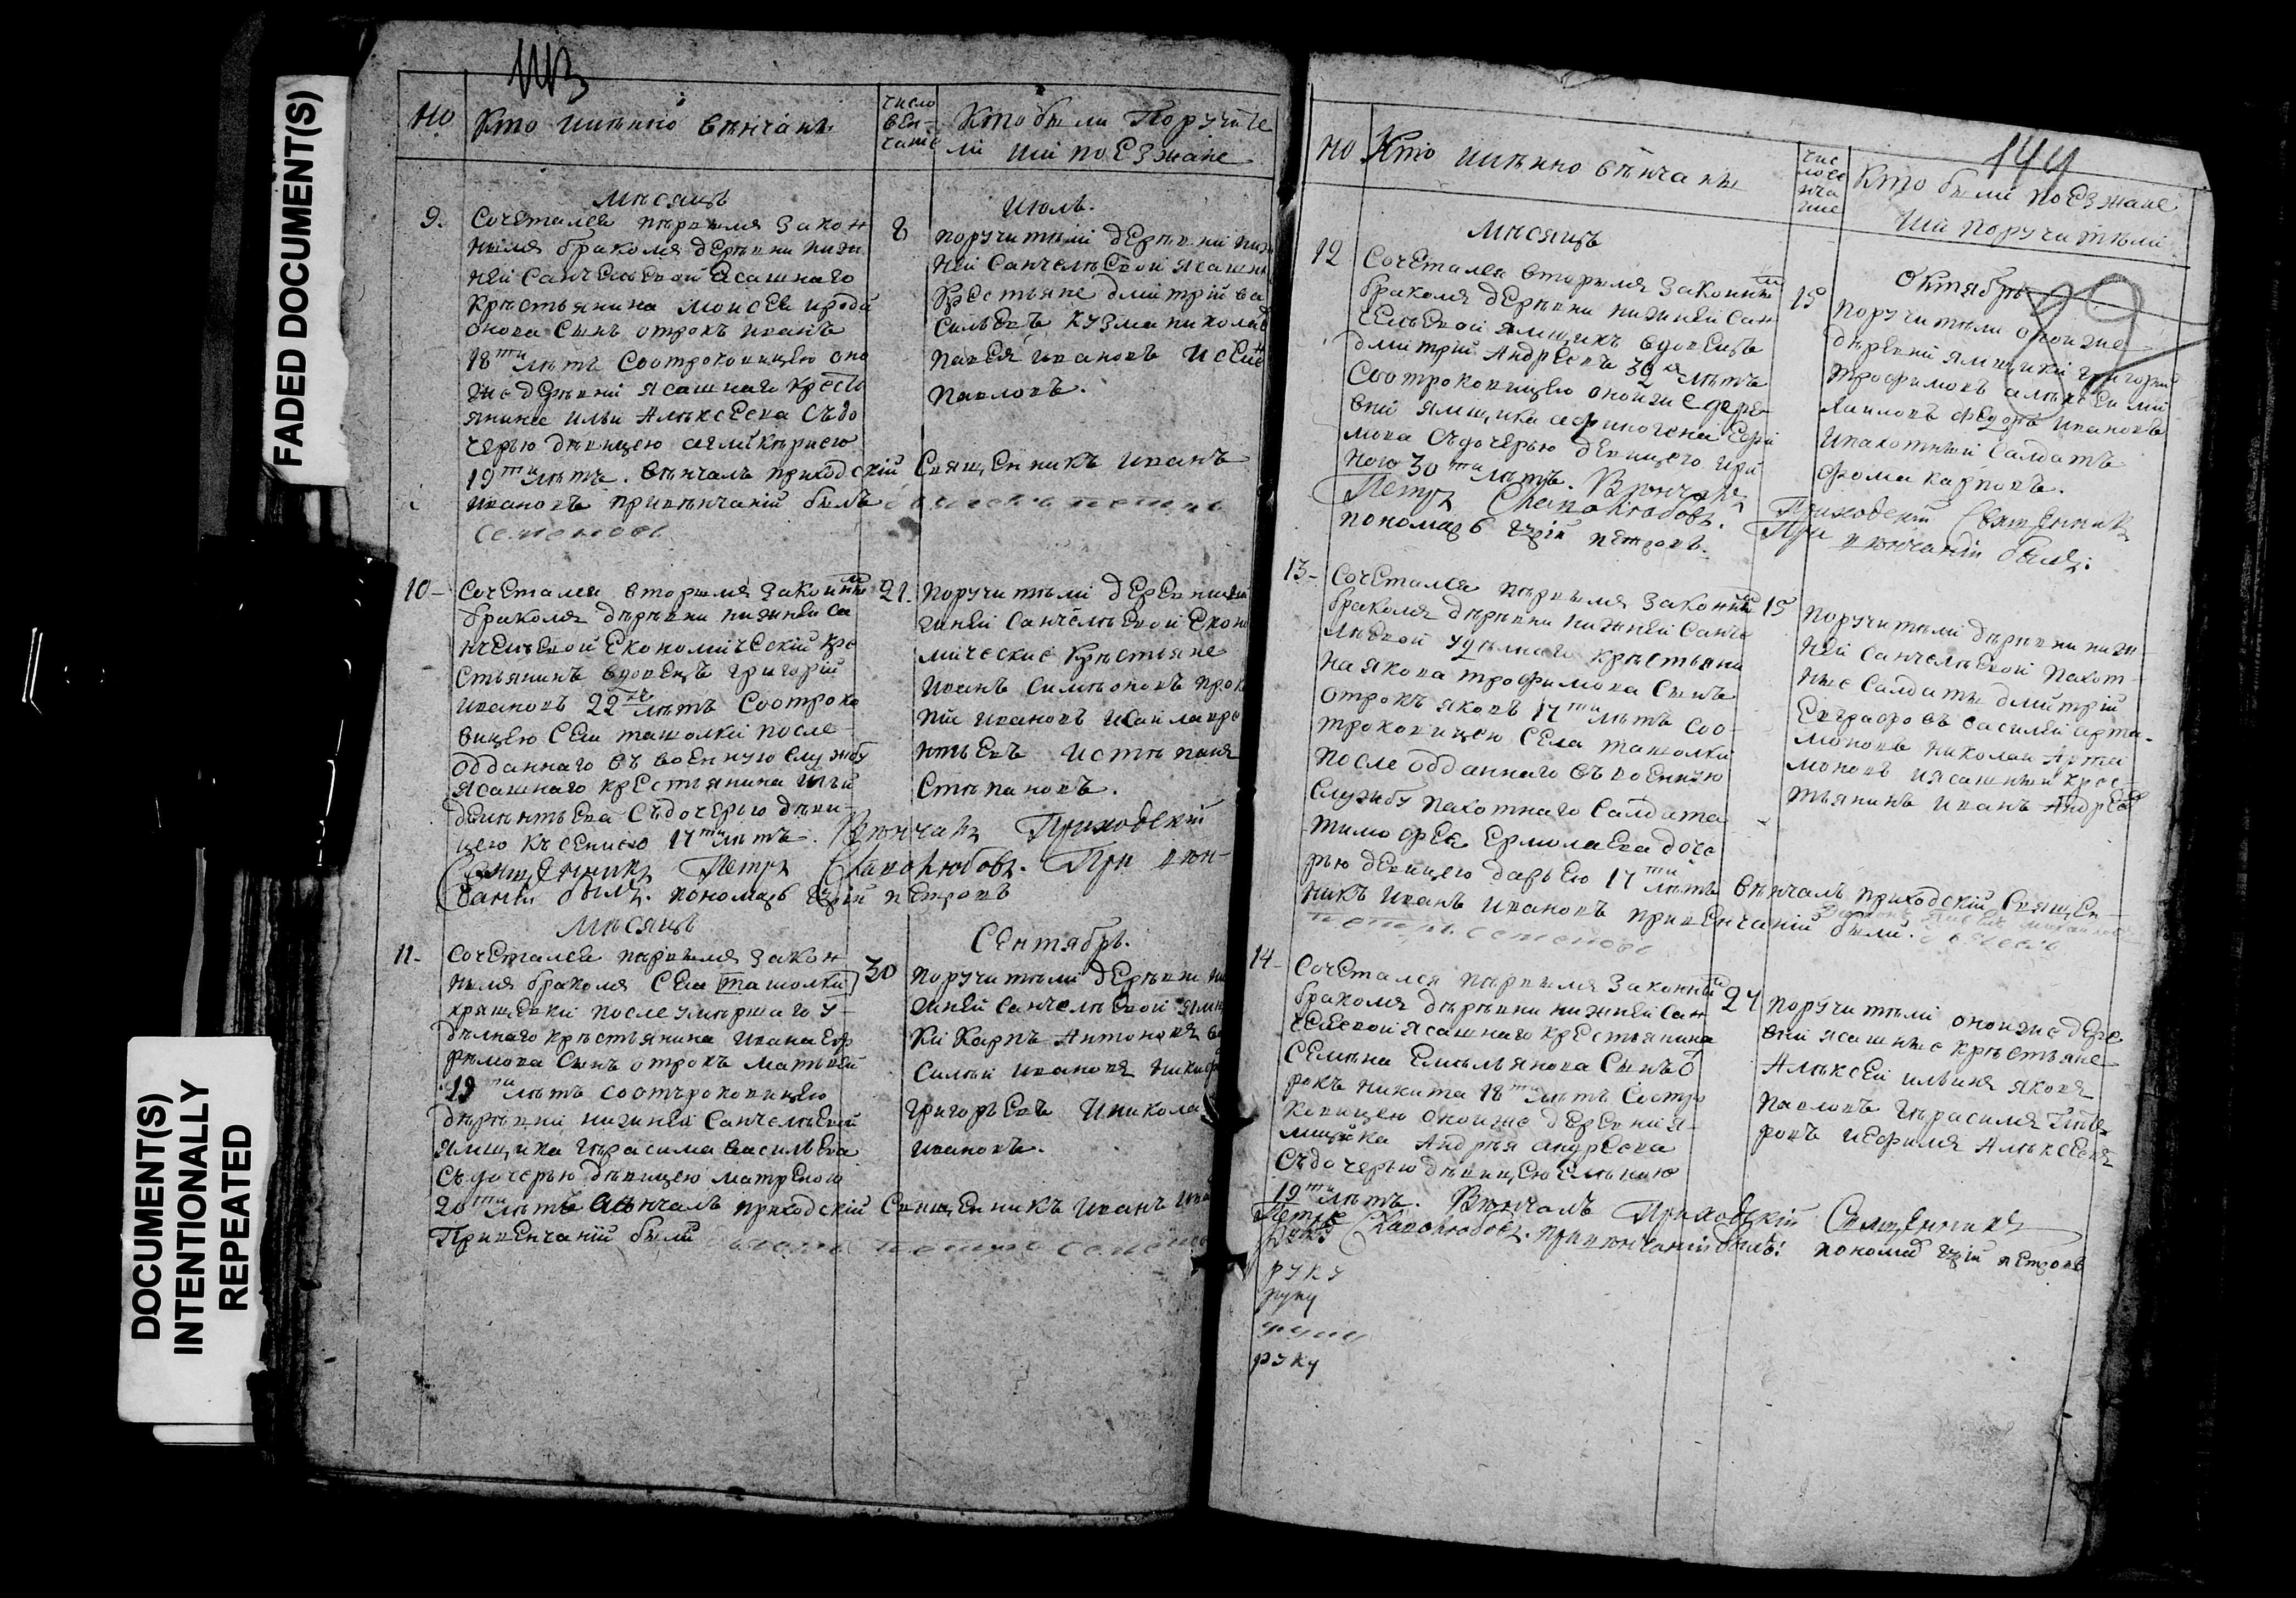 FADED DOCUMENT(S)
DOCUMENT(S)
INTENTIONALLY
REPEATED
Но
Кто имѣнно вѣнчаны
число
вен-
чание
Кто были Поручите
ли ийпоезжане
Мѣсяцъ
Июль.
9.
Сочетался пѣрвымя закон
нымя бракомя дерѣвни ниж
ней Санчелѣевой ясашнаго
крѣстьянина Моисея ироди
онова сынъ отрокъ иванъ
18ти лѣтъ Соотроковицею оно
же дерѣвни ясашнаго кресть
янина ильи Алѣксеева Съдо
черью дѣвицею
19ти лѣтъ. вѣнчалъ приходскій Священникъ Иванъ
ивановъ привѣнчаніи былъ
семеновъ
8
поручитѣли дерѣвни ниж
ней Санчелѣевой ясашны
Крестьяне дмитрій ва
сильевъ кузма николаев
павел ивановъ Исеме
павловъ.
10-
Сочетался вторымя законны
бракомя дѣрѣвни нижнѣй са
нчелѣевой Економическій кре
стьянинъ вдовецъ григорій
ивановъ 22 лѣтъ Соотроко
вицею Села ташолки после
отданнаго въ военную службу
ясашнаго крестьянина ильи
демѣнтьева Съдочерью дѣви
цею Ксениею 17ти лѣтъ. Вѣнчалъ Приходскій
Священникъ Петръ Славолюбовъ. При вѣн-
чаніи былъ. пономарь егрій петровъ
21.
поручитѣли дерѣвни ни
жней Санчелѣевой Еконо
мическіе Крѣстьяне
Иванъ Симѣоновъ прок
пій ивановъ Исай лавре
нтьевъ Истѣпаня
Стѣпановъ.
Мѣсяцъ
Сентябрь.
11-
Сочетался пѣрвымя закон
нымя бракомя Села ташолки
после умѣршаго у-
дѣлнаго крѣстьянина Ивана Еф
рѣмова Сынъ отрокъ Матвѣй
19ти лѣтъ соотъроковицею
дѣрѣвни нижнѣй Санчелѣевой
Ямщика гѣрасима васильева
Съдочерью дѣвицею матреною
20ти лѣтъ вѣнчалъ приходскій Священникъ Иванъ Ива
Привенчаніи были
30
поручитѣли дерѣвни ни
жней Санчелѣевой ямщи
ки Карпъ Антоновя ва
силѣй ивановя Никиф
григорьевъ Иникола
ивановъ.
144
Но
Кто имѣнно вѣнчаны
чис
ло ве
нча
ние
Кто были поезжане
Ий поручитѣли
Мѣсяцъ
Октябрь
12
Сочетался вторымя законны
бракомя дерѣвни нижнѣй сан
челѣевой ямщикъ вдовецъ
дмитрій Андреевъ 39 лѣтъ
Соотроковицею оной же дере
вни ямщика афиногена ефи
мова Съдочерью девицею ири
ною 30ти лѣтъ. Вѣнчалъ Приходскій Священникъ
Петръ Славолюбовъ. При вѣнчаніи былъ:
пономарь егрій петровъ.
15
поручитѣли оной же
дѣрѣвни ямщики григорий
трофимовъ алѣксей ми
хайловъ федоръ ивановъ
Ипахотный Салдатъ
фома карповъ.
13-
Сочетался пѣрвымя законны
бракомя дѣрѣвни нижнѣй Санче
лѣевой удѣлнаго крѣстьяни
на якова трофимова Сынъ
отрокъ яковъ 17ти лѣтъ соо-
троковицею Села ташолки
после отданнаго въ военную
службу пахотнаго Салдата
тимофея Ермолаева доче
рью девицею дарьею 17ти лѣтъ вѣнчалъ приходскій Священ-
никъ Иванъ ивановъ привенчаніи были.
петръ семеновъ
15
поручитѣли дѣрѣвни ниж-
ней санчелѣевой пахот-
ные Салдаты дмитрій
Евграфовъ василей арта-
моновъ николай Арта
моновъ Иясашный крес-
тьянинъ иванъ Андреев
14-
Сочетался пѣрвымя законны
бракомя дѣрѣвни нижнѣй сан
челѣевой ясашнаго крестьянина
Семѣна Емельянова Сынъ о
рокъ никита 18ти лѣтъ Соотро
ковицею оной же дерѣвни я-
мщика Андрѣя андреева
Съдочерью дѣвицею еленою
19ти лѣтъ. Вѣнчалъ Приходскій Священникъ
Петръ Славолюбовъ. привѣнчаніи былъ: пономарь егрій петровъ
24
поручитѣли оной же дере
вни ясашные крѣстьяне
Алѣксей ильинъ яковя
павловъ гѣрасимя
ровъ Иефимя Алѣксеевъ
руку
руку
руку